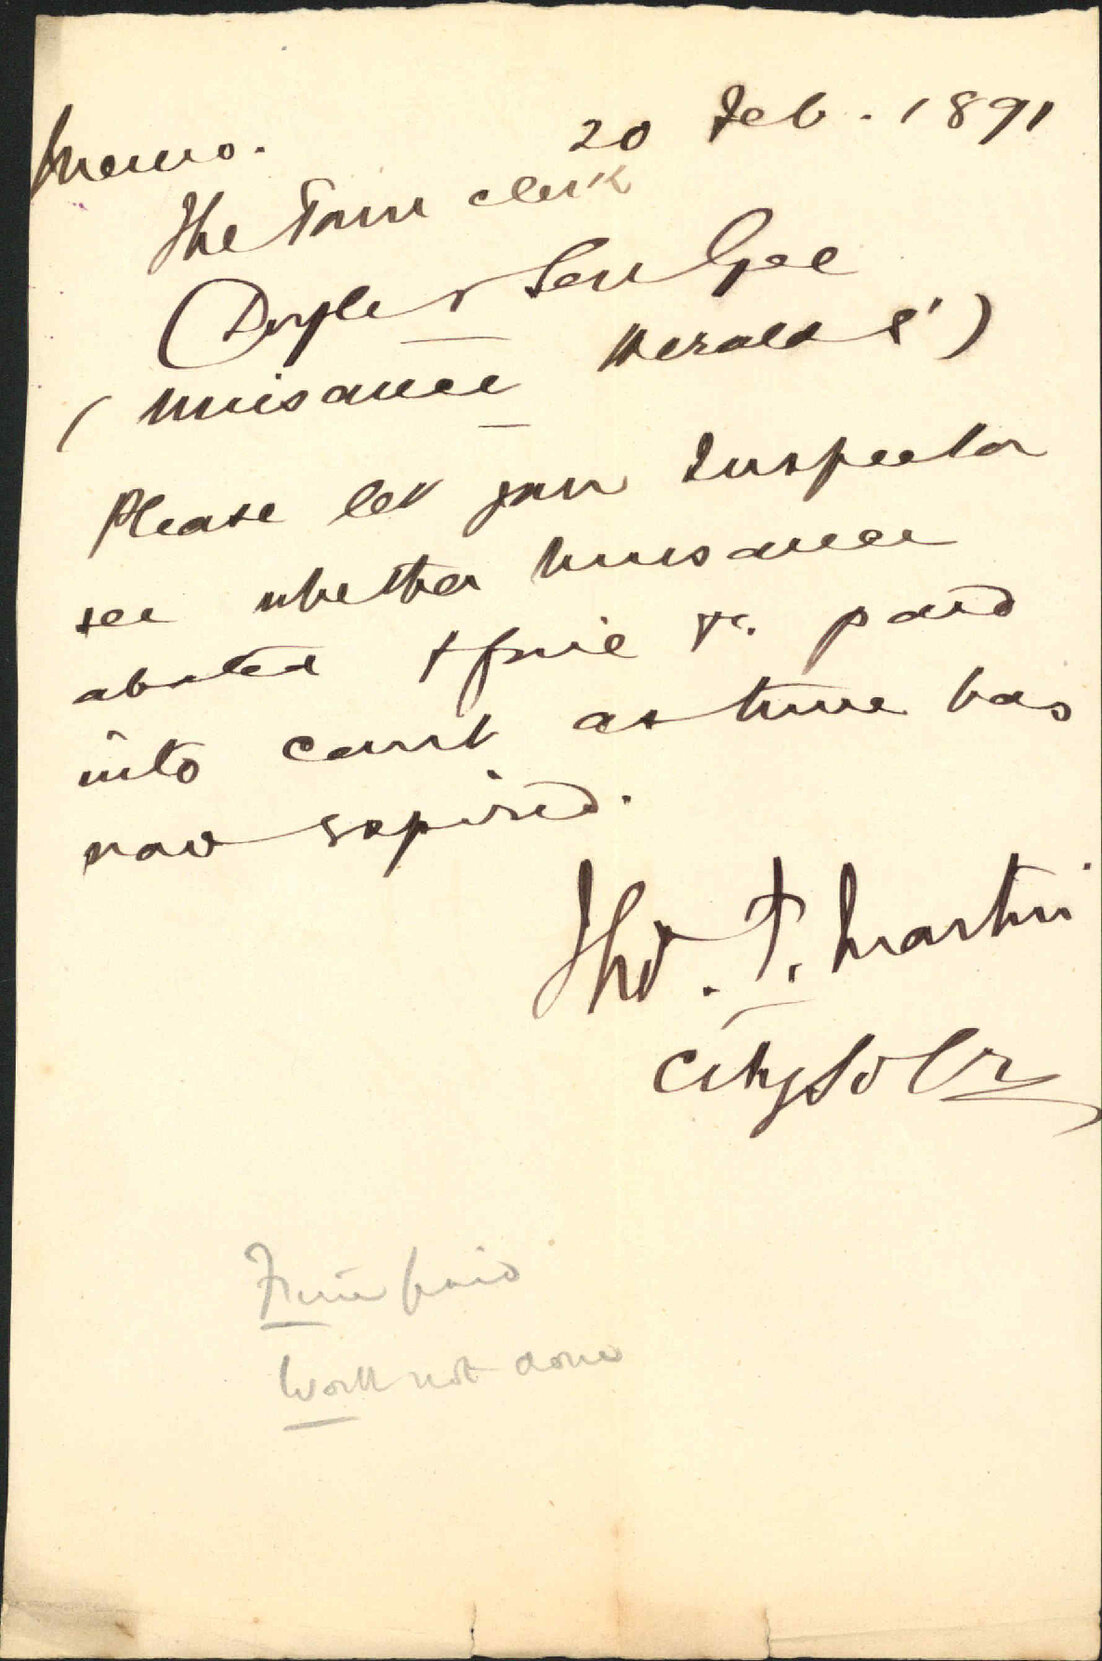 Memo. 20 Feb. 1891
The Town Clerk
(Doyle v Sen Gee
(Nuisance Herald St)
Please let your Inspector
see whether nuisance
abated & fine &c. paid
into court as time has
now expired.
Thos. T. Martin
City Solr
Fine paid
Work not done